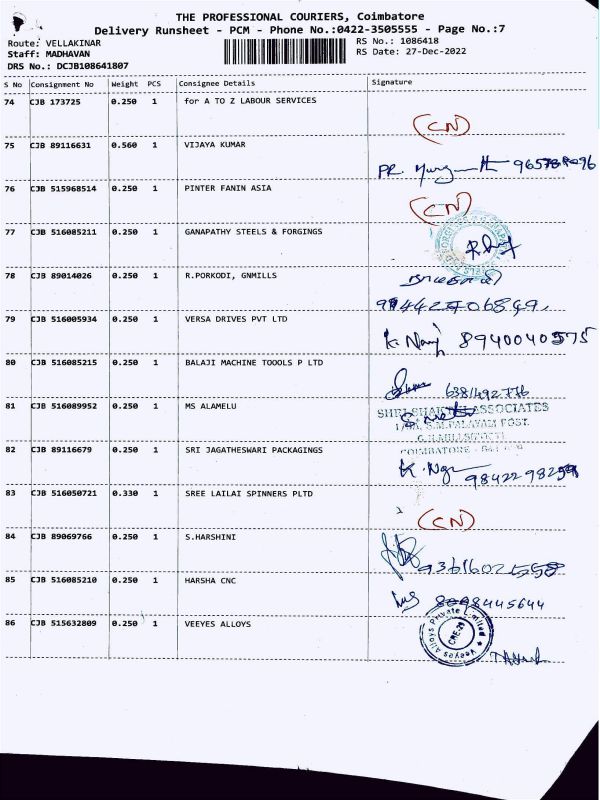 THE PROFESSIONAL COURIERS, Coimbatore
Delivery Runsheet - PCM - Phone No.:0422-3505555 - Page No.:7
Route: VELLAKINAR
RS No.: 1086418
Staff: MADHAVAN
RS Date: 27-Dec-2022
DRS No.: DCJB108641807
S No Consignment No Weight PCS Consignee Details Signature
74 CJB 173725 0.250 1 for A TO Z LABOUR SERVICES
(CN)
75 CJB 89116631 0.560 1 VIJAYA KUMAR
PR.
76 CJB 515968514 0.250 1 PINTER FANIN ASIA
(CN)
77 CJB 516085211 0.250 1 GANAPATHY STEELS & FORGINGS
78 CJB 89014026 0.250 1 R.PORKODI, GNMILLS
79 CJB 516005934 0.250 1 VERSA DRIVES PVT LTD
8940040575
80 CJB 516085215 0.250 1 BALAJI MACHINE TOOOLS P LTD
6381492776
81 CJB 516089952 0.250 1 MS ALAMELU
ASSOCIATES
S.M.PALAYAM POST.
COIMBATORE
82 CJB 89116679 0.250 1 SRI JAGATHESWARI PACKAGINGS
83 CJB 516050721 0.330 1 SREE LAILAI SPINNERS PLTD
(CN)
84 CJB 89069766 0.250 1 S.HARSHINI
85 CJB 516085210 0.250 1 HARSHA CNC
86 CJB 515632809 0.250 1 VEEYES ALLOYS
Veeyes Alloys Private Limited
CBE-29